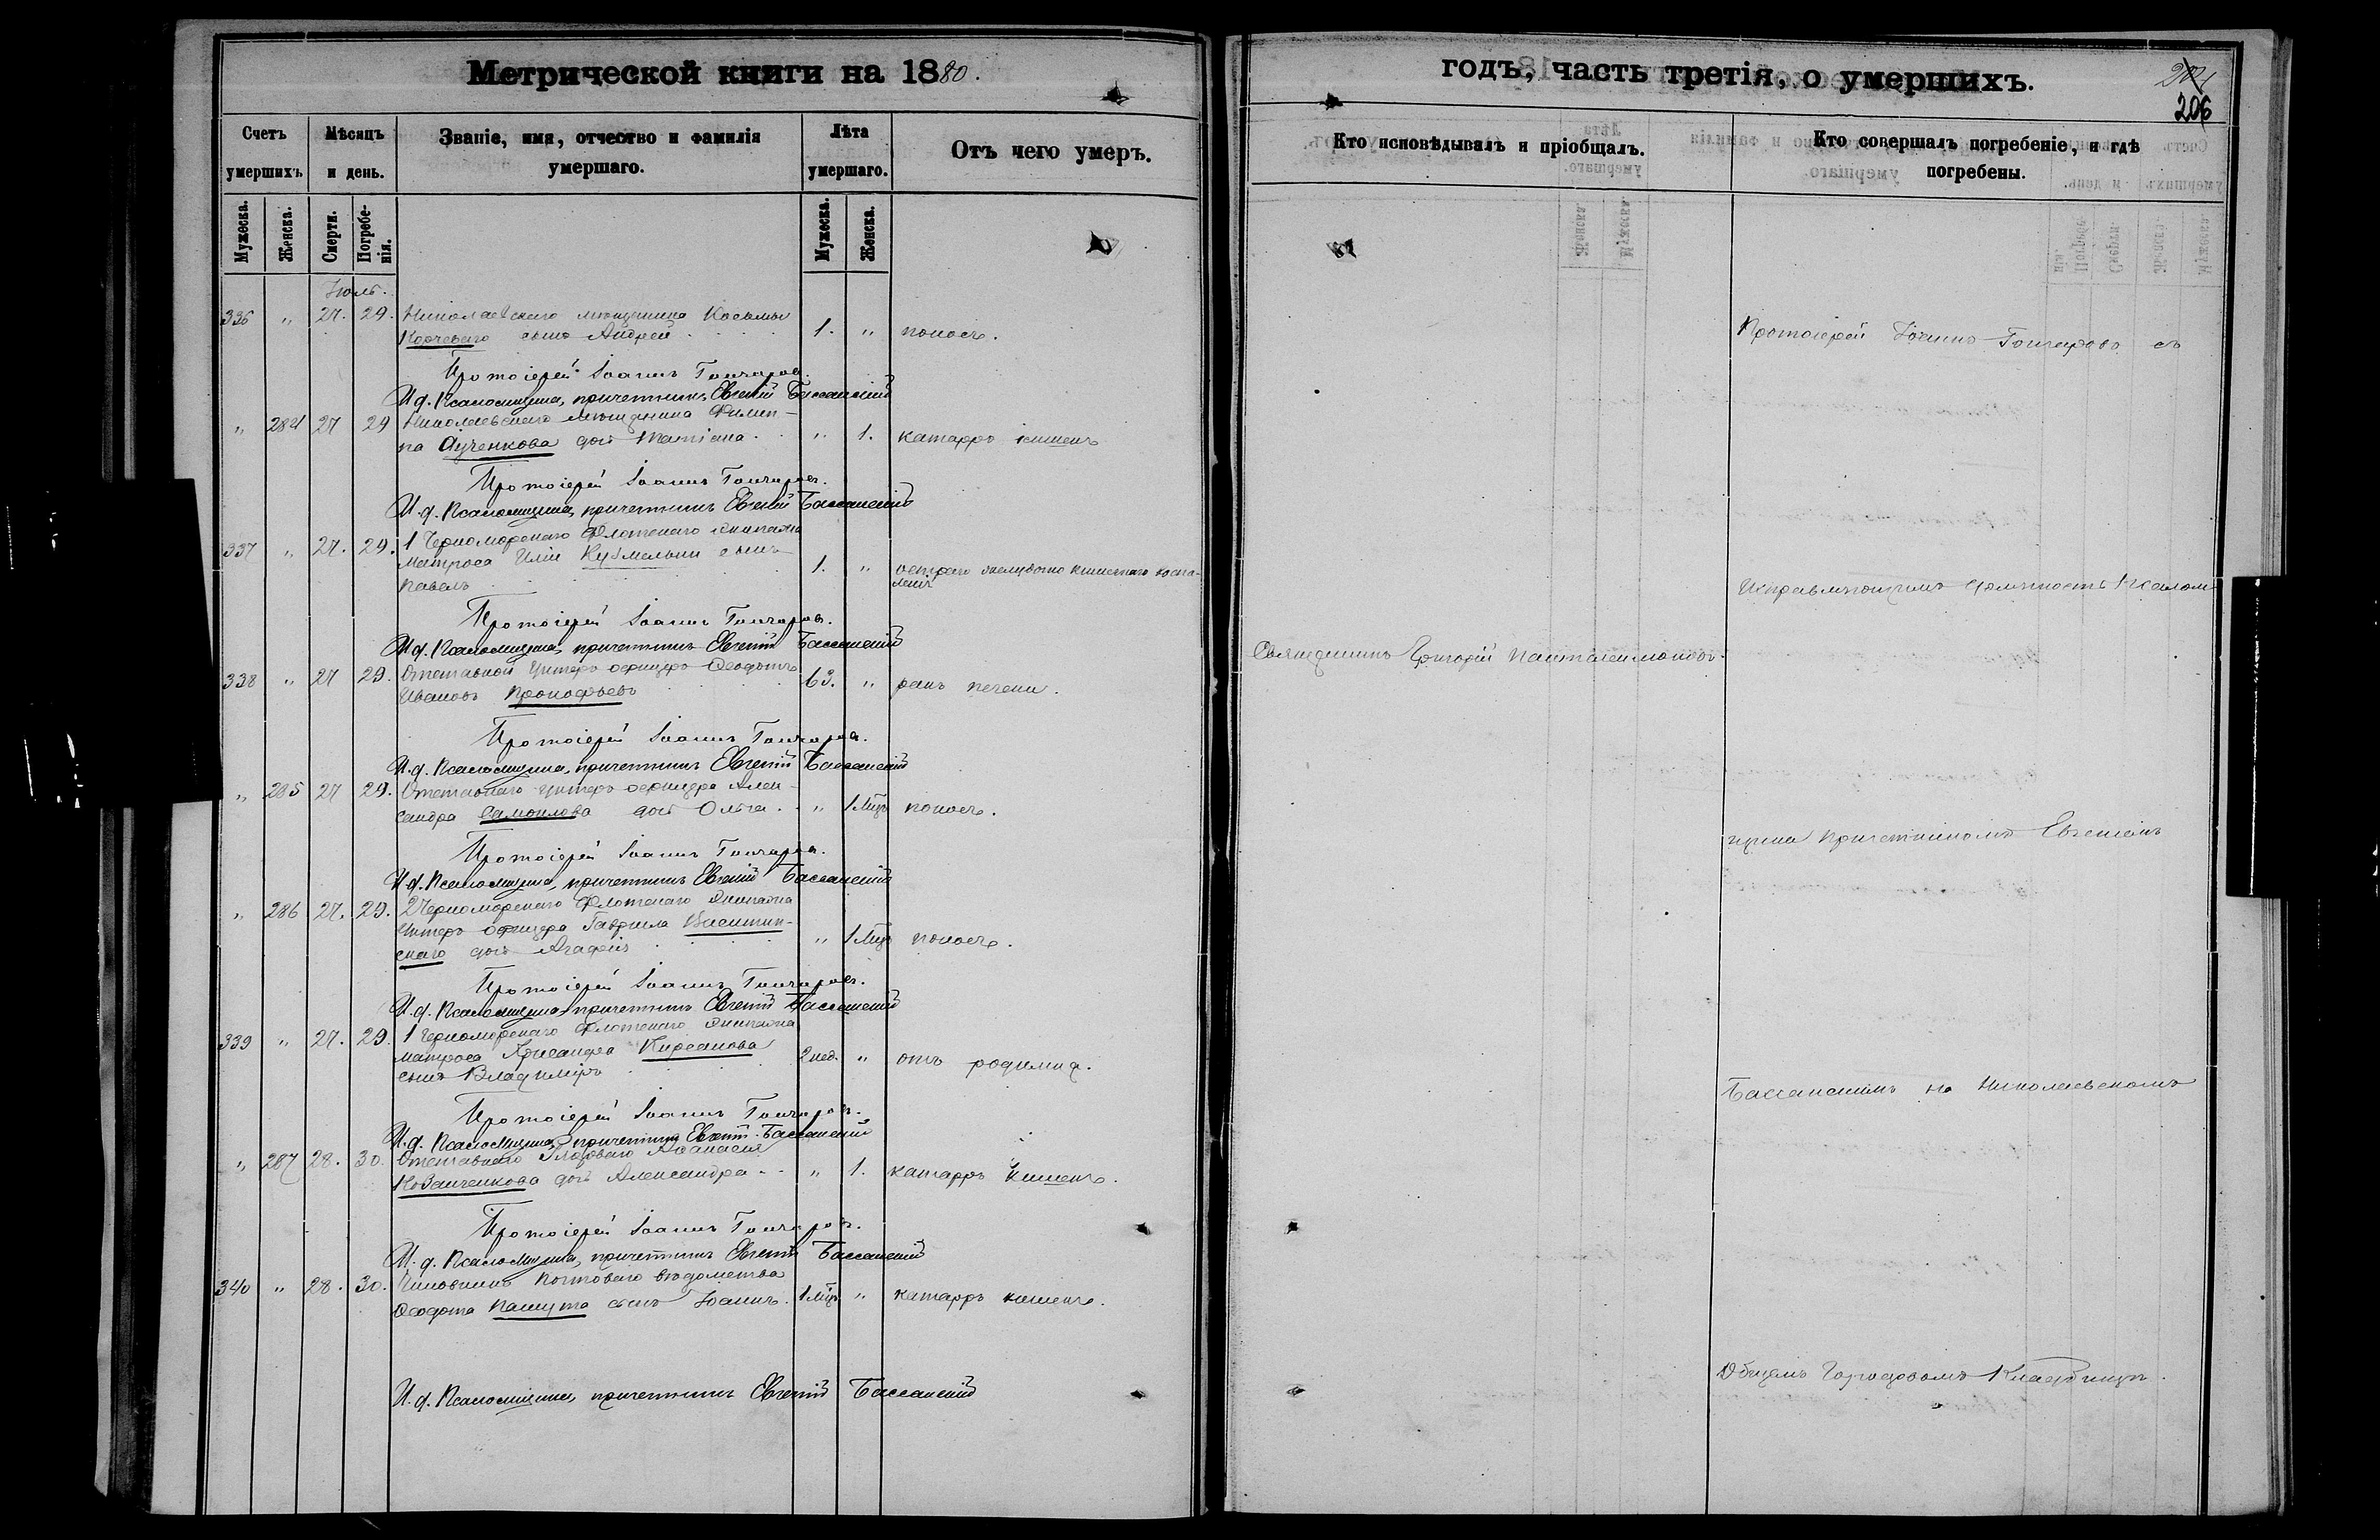 Метрической книги на 1880.
Счетъ умершихъ
Мѣсяцъ и день.
Званіе, имя, отчество и фамилія умершаго.
Лѣта умершаго.
Отъ чего умеръ.
Мужеска. Женска. Смерти. Погребенія. Мужеска. Женска.
Іюль.
336 " 27. 29. Николаевскаго мѣщанина Косьмы
Корчеваго сынъ Андрей 1. " поносъ.
Протоіерей Іоаннъ Гончаровъ.
И. д. Псаломщика, причетникъ Евгеній Бассанскій
" 284 27 29 Николаевскаго мѣщанина Филип-
па дочь Татіана " 1. катарръ кишекъ
Протоіерей Іоаннъ Гончаровъ.
И. д. Псаломщика, причетникъ Евгеній Бассанскій
337 " 27. 29. 1 Черноморскаго Флотскаго экипажа
матроса Иліи сынъ
Павелъ 1. " остраго желудочно кишечнаго воспа-
ленія
Протоіерей Іоаннъ Гончаровъ.
И. д. Псаломщика, причетникъ Евгеній Бассанскій
338 " 27 29. Отставной Унтеръ офицеръ Ѳеодотъ
Ивановъ Прокофьевъ 63. " ракъ печени.
Протоіерей Іоаннъ Гончаровъ.
И. д. Псаломщика, причетникъ Евгеній Бассанскій
" 285 27 29. Отставнаго унтеръ офицера Алек-
сандра Самойлова дочь Ольга " 1 Мцъ поносъ.
Протоіерей Іоаннъ Гончаровъ.
И. д. Псаломщика, причетникъ Евгеній Бассанскій
" 286 27. 29. 2 Черноморскаго Флотскаго экипажа
Унтеръ офицера Гавріила
скаго дочь Агафія " 1 Мцъ поносъ.
Протоіерей Іоаннъ Гончаровъ.
И. д. Псаломщика, причетникъ Евгеній Бассанскій
339 " 27. 29. 1 Черноморскаго Флотскаго экипажа
матроса Хрисанфа Кирсанова
сынъ Владиміръ 2 нед. " отъ родимца.
Протоіерей Іоаннъ Гончаровъ.
И. д. Псаломщика, причетникъ Евгеній Бассанскій
" 287 28. 30. Отставнаго Рядоваго Аѳанасія
Козаченкова дочь Александра " 1. катарръ кишекъ.
Протоіерей Іоаннъ Гончаровъ.
И. д. Псаломщика, причетникъ Евгеній Бассанскій
340 " 28. 30. Чиновника почтоваго вѣдомства
Ѳеодота Пашута сынъ Іоаннъ. 1 Мцъ " катарръ кишекъ.
И. д. Псаломщика, причетникъ Евгеній Бассанскій
годъ, часть третія, о умершихъ.
206
Кто исповѣдывалъ и пріобщалъ.
Кто совершалъ погребеніе, и гдѣ погребены.
Протоіерей Іоаннъ Гончаровъ съ
Исправляющимъ должность Псалом
Священникъ Григорій Пантелеимоновъ.
щика причетникомъ Евгеніемъ
Бассанскимъ на Николаевскомъ
Общемъ Городовомъ Кладбищѣ.